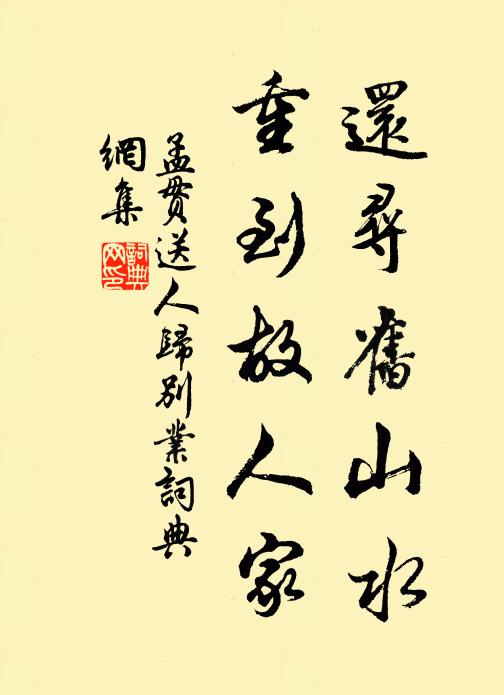 還尋舊山水
重到故人家
孟貫送人歸別業詞典
網集
詞典
网印